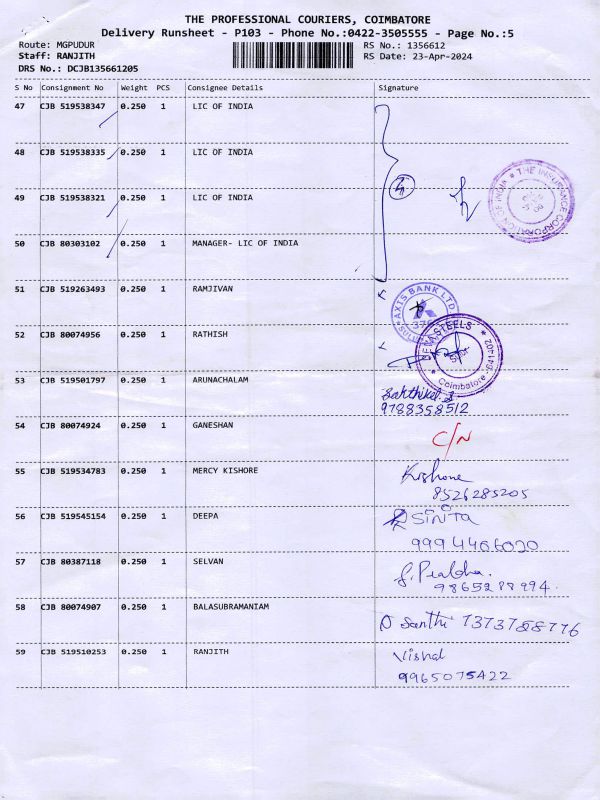 THE PROFESSIONAL COURIERS, COIMBATORE
Delivery Runsheet - P103 - Phone No.:0422-3505555 - Page No.:5
Route: MGPUDUR RS No.: 1356612
Staff: RANJITH RS Date: 23-Apr-2024
DRS No.: DCJB135661205
S No Consignment No Weight PCS Consignee Details Signature
47 CJB 519538347 0.250 1 LIC OF INDIA
48 CJB 519538335 0.250 1 LIC OF INDIA
49 CJB 519538321 0.250 1 LIC OF INDIA
50 CJB 80303102 0.250 1 MANAGER- LIC OF INDIA
51 CJB 519263493 0.250 1 RAMJIVAN
AXIS BANK LTD
52 CJB 80074956 0.250 1 RATHISH
STEELS
Coimbatore-641402
53 CJB 519501797 0.250 1 ARUNACHALAM
9788358512
54 CJB 80074924 0.250 1 GANESHAN
C/N
55 CJB 519534783 0.250 1 MERCY KISHORE
Kishore
8526285205
56 CJB 519545154 0.250 1 DEEPA
9994466020
57 CJB 80387118 0.250 1 SELVAN
9865288994
58 CJB 80074907 0.250 1 BALASUBRAMANIAM
Santhi
59 CJB 519510253 0.250 1 RANJITH
Vishal
9965075422